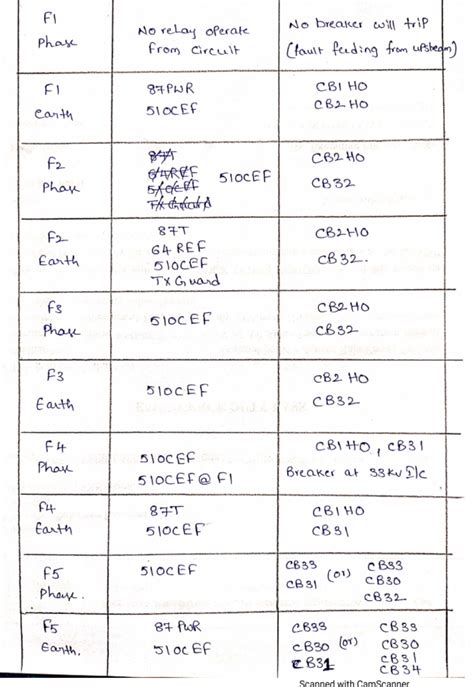 F1 Phase
No relay operate from circuit
No breaker will trip (fault feeding from upstream)
F1 Earth
87PWR
510CEF
CB1 HO
CB2 HO
F2 Phase
87T
64REF
510CEF
TX Guard
510CEF
CB2 HO
CB32
F2 Earth
87T
64 REF
510CEF
TX Guard
CB2HO
CB32.
F3 Phase
510CEF
CB2 HO
CB32
F3 Earth
510CEF
CB2 HO
CB32
F4 Phase
510CEF
510CEF @ F1
CB1 HO, CB31
Breaker at 33kV I/c
F4 Earth
87T
510CEF
CB1HO
CB31
F5 Phase.
510CEF
CB33
CB31
(or)
CB33
CB30
CB32
F5 Earth.
87 PWR
510CEF
CB33
CB30
CB31
(or)
CB33
CB30
CB31
CB34
Scanned with CamScanner